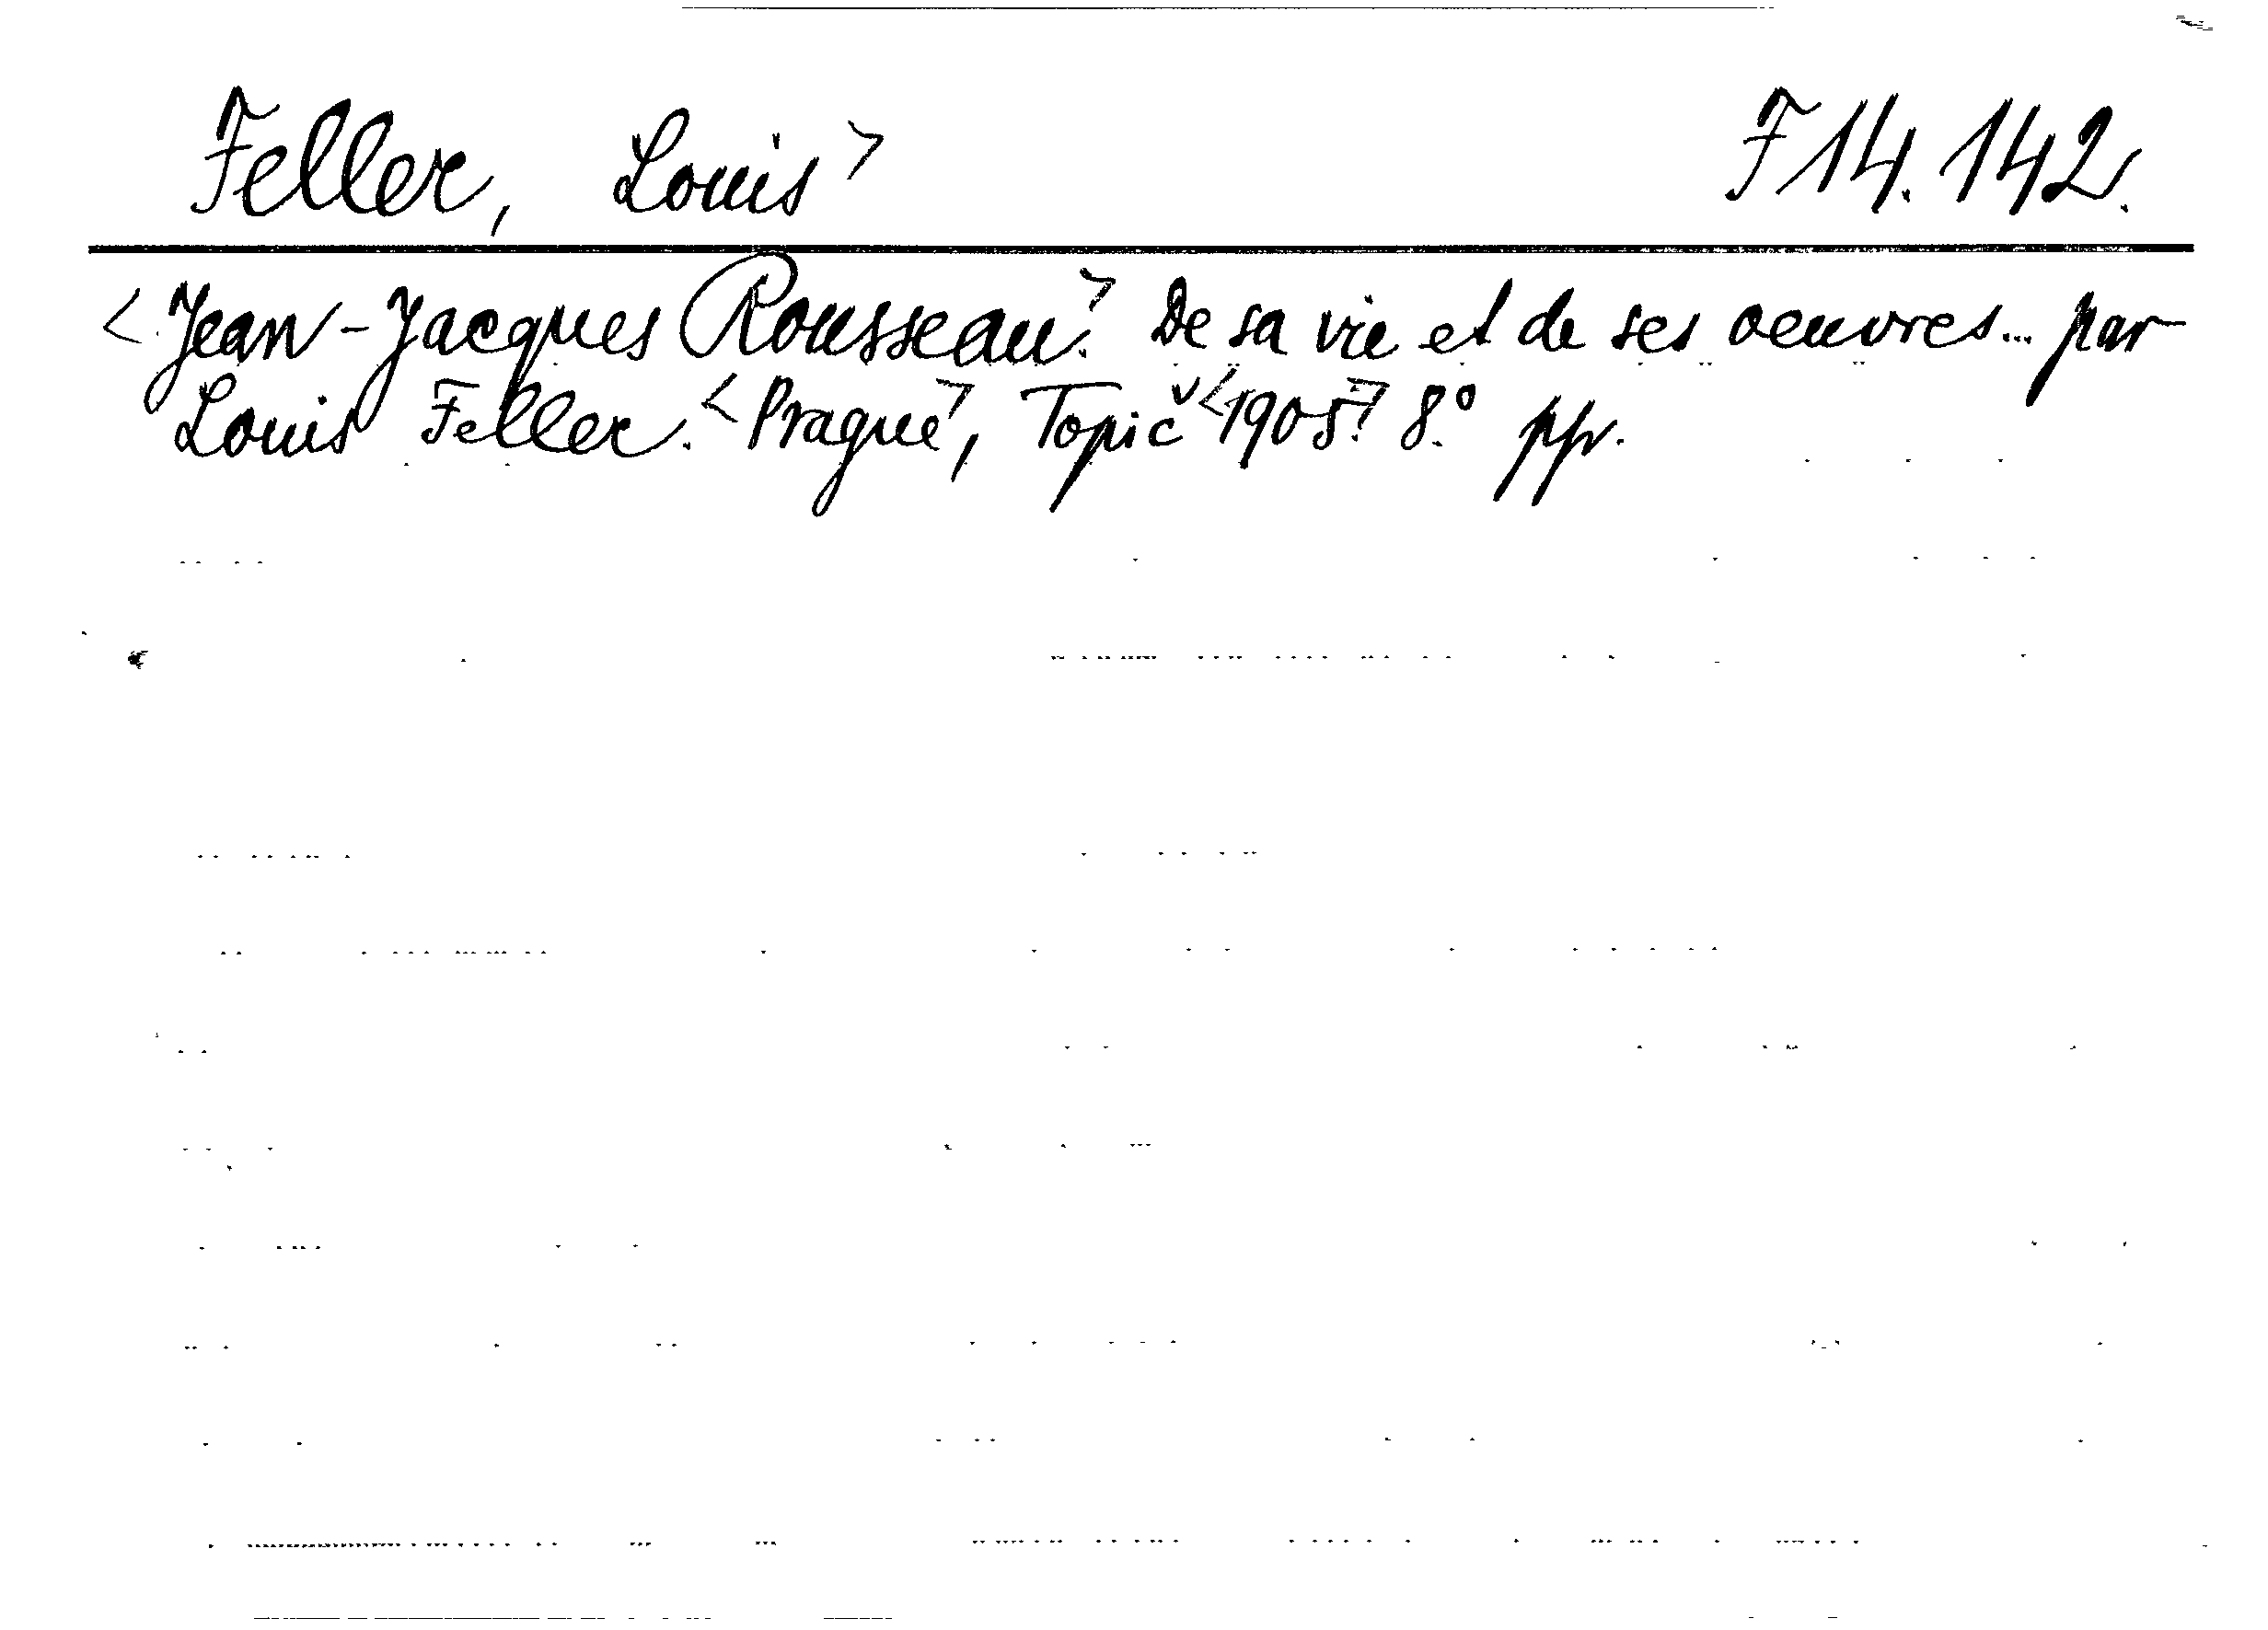 Feller, Louis> F 14.142.
<Jean-Jacques Rousseau.> De sa vie et de ses oeuvres... par
Louis Feller. <Prague>, Topič <1905.> 8.° ppr.